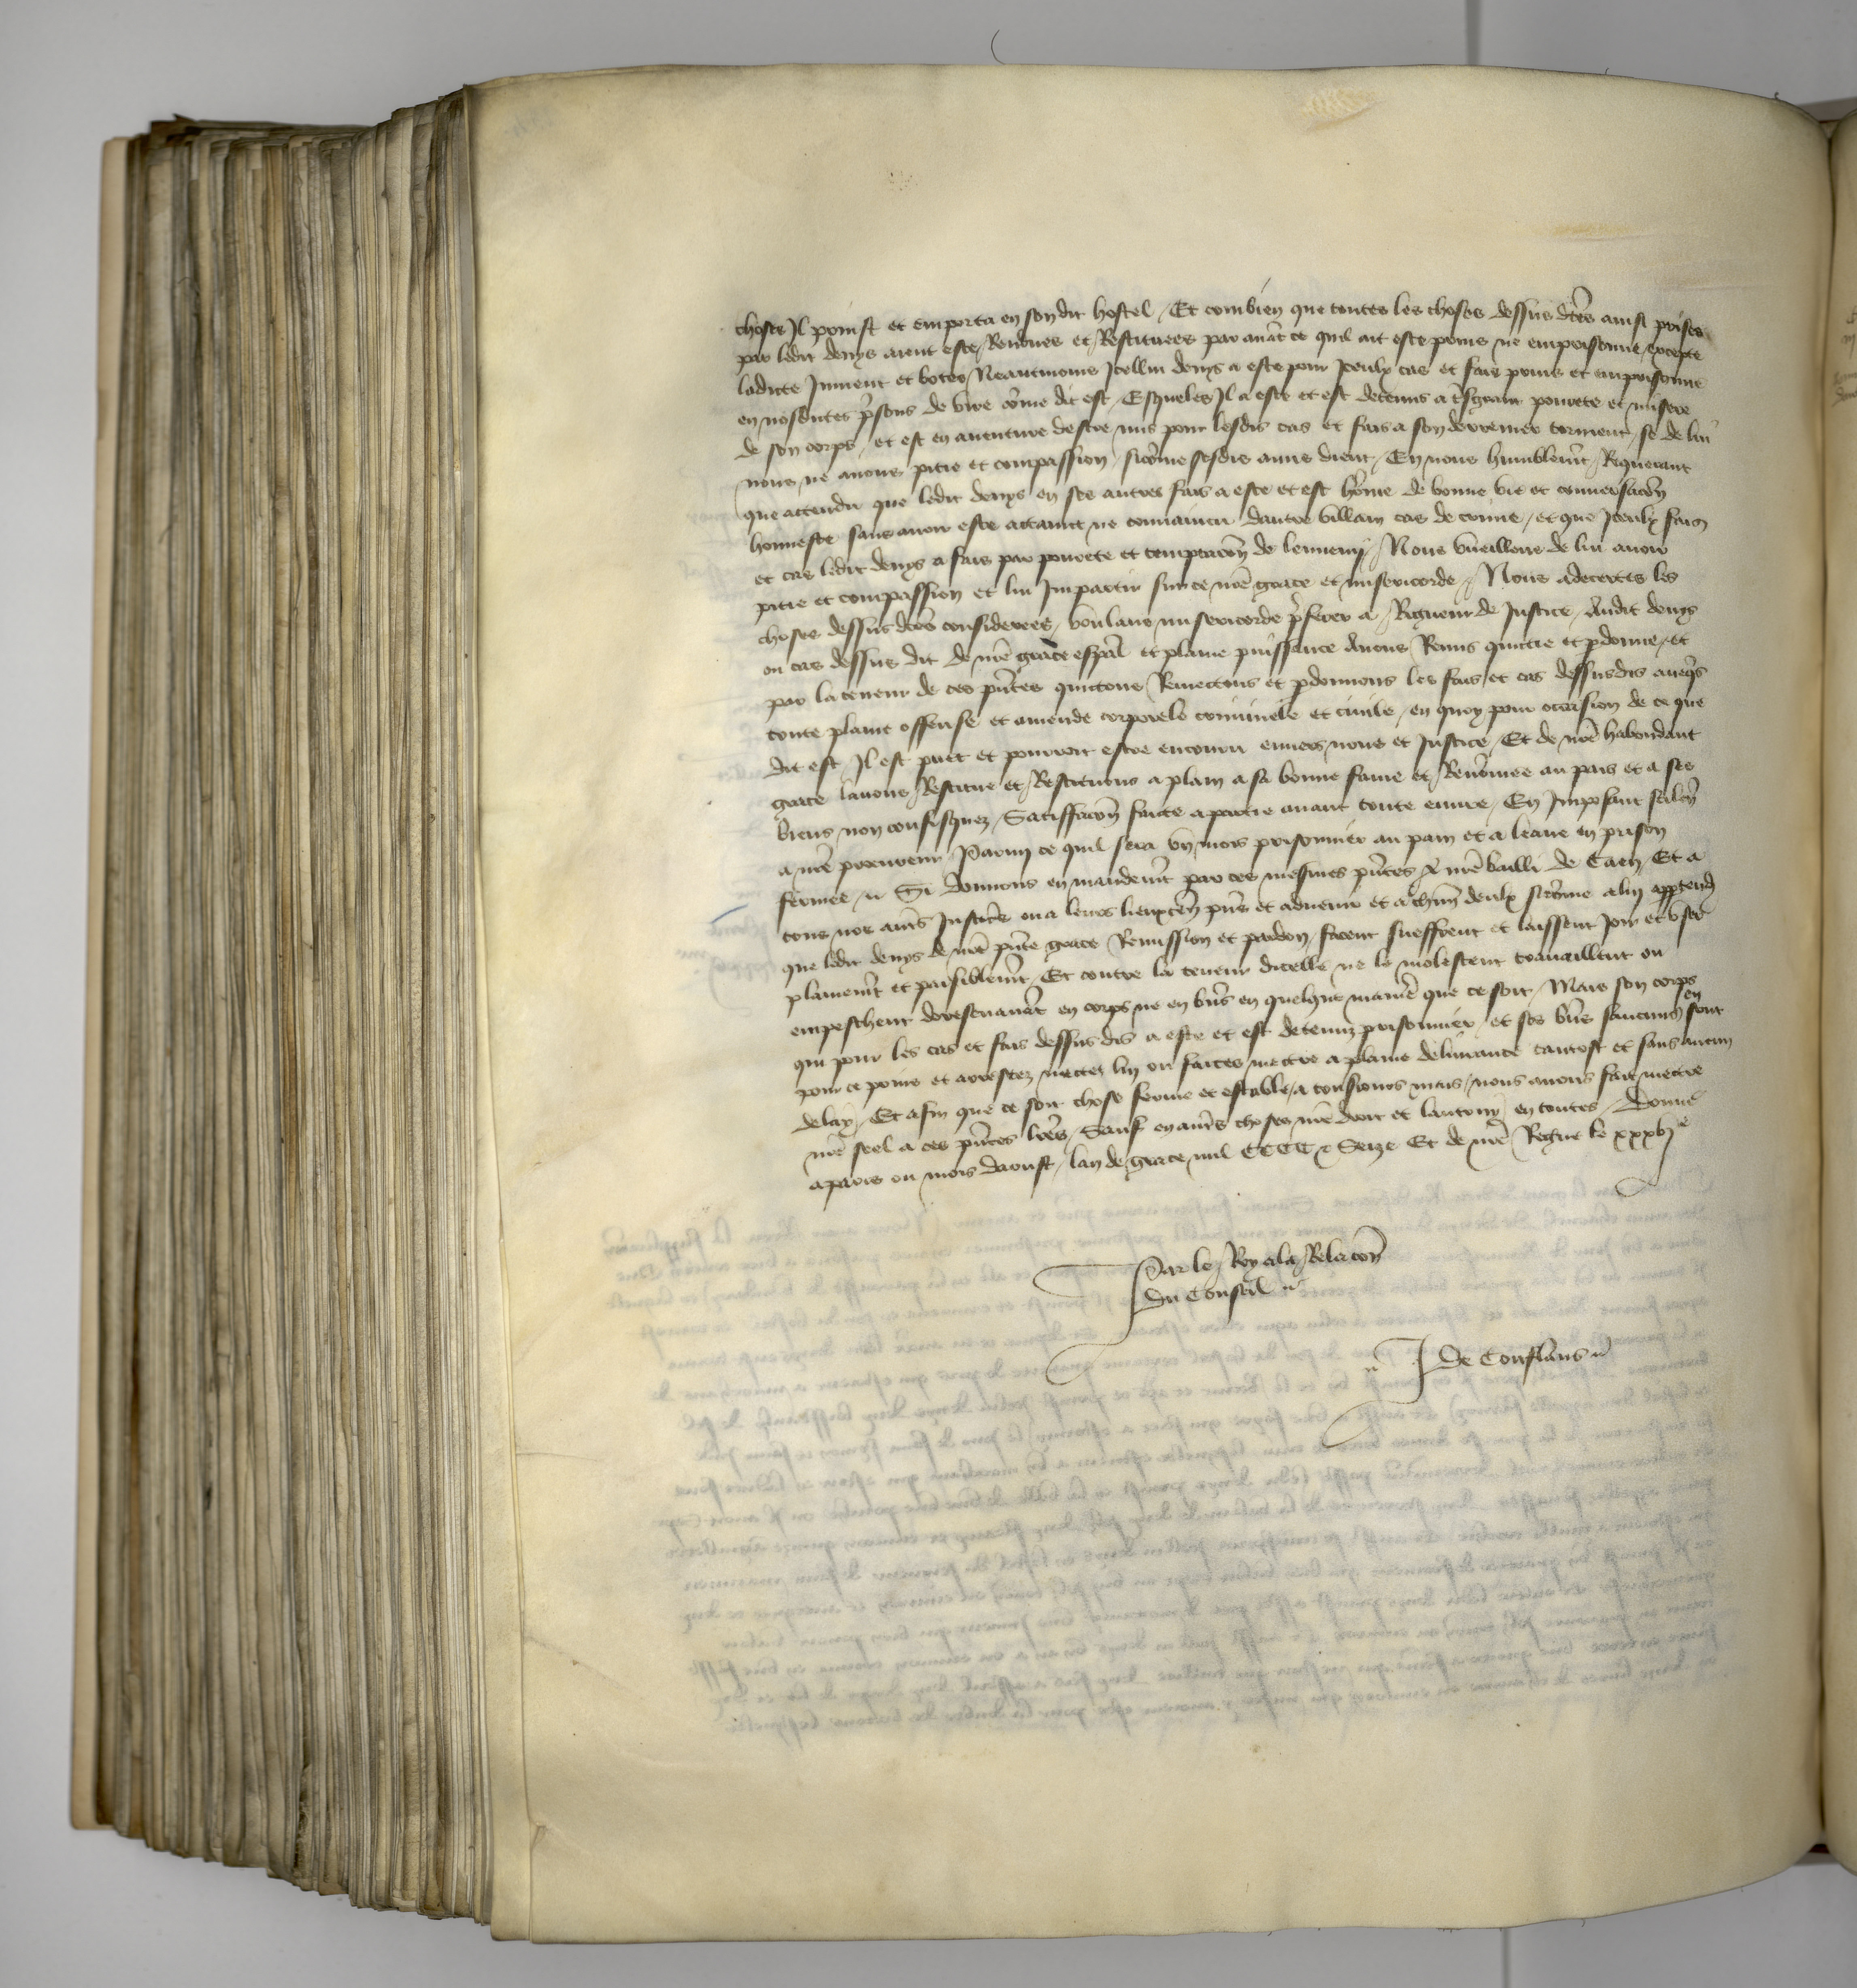 choses Il prinst et emporta en son dit hostel / Et combien que toutes les choses dessus dẽs ainsi prises
par ledit denys aient este / Rendues et / Restituees par auãt ce quil ait este prins ne emprisonne / excepte
ladicte Jument et botes / Neantmoins Icellui denys a este pour Iceulx cas et fais prins et emprisonne
en nosdictes p̃sons de vire cõme dit est / Esquelles Il a este et est detenus a t̃sgrant pourete et misere
de son corps / et est en auenture destre mis pour lesdis cas et fais a son derrenier torment / se de lui
nous ne auons pitie et compassion / sicõme sesdis amis dient / En nous humblem̃t / Requerant
que attendu que ledit denys en ses autres fais a este et est hõme de bonne vie et conuersacõn
honneste sans auoir este attaint ne conuaincu dautre villain cas de crime / et que Iceulx fais
et cas ledit denys a fais par pourete et temptacõn de lennemj / Nous vueillons de lui auoir
pitie et compassion et lui Impartir sur ce nr̃e grace et misericorde / Nous adecertes les
choses dessus dẽs considerees / voulans misericorde p̃ferer a / Rigueur de Justice / Audit denys
ou cas dessus dit de nr̃e grace esp̃al et plaine puissance Auons Remis quictie et pdonne / et
par la teneur de ces pñtes quictons / Remectons et pdonnons les fais et cas dessusdis auecq̃s
toute plaine offense et amende corporele criminele et ciuile / en quoy pour occasion de ce que
dit est / Il est puet et pourroit estre encouru enuers nous et Justice / Et de nr̃e habondant
grace lauons / Restitue et / Restituons a plain a sa bonne fame et / Renõmee au pais et a ses
biens non confisquez / Satiffacõn faicte a partie auant toute euure / En Imposant silẽn
a nr̃e procureur Parmy ce quil sera vn mois prisonnier au pain et a leaue en prison
fermee // Si donnons en mandem̃t par ces mesmes pñtes A nr̃e bailli de Caen / Et a
tous nos aut̃s Justic̃s ou a leurs lieuxten̄ pñs et aduenir et a chũn deulx sicõme a luy apptend̃
que ledit denys de nr̃e pñte grace Remission et pardon / facent sueffrent et laissent Joir et vser
plainem̃t et paisiblem̃t / Et contre la teneur dicelle ne le molestent trauaillent ou
empeschent doresenauãt en corps ne en bñs en quelque manie͂ que ce soit / Mais son corps
qui pour les cas et fais dessus dis a este et est detenuz prisonnier / et ses bñs saucuns en sont
pour ce prins et arrestez mectez luy ou faictes mectre a plaine deliurance tantost et sans aucun
delay / Et afin que ce soit chose ferme et estable a tousiours mais / nous auons fait mectre
nr̃e seel a ces pñtes lr̃es / Sauf en aut̃s choses nr̃e droit et lautruy en toutes / Donne
a paris ou mois daoust / lan de grace mil CCCC & Seize Et de nr̃e Regne le xxxvj e
Par le / Roy a la / Relacõn
du Conseil //
J De Conflans //